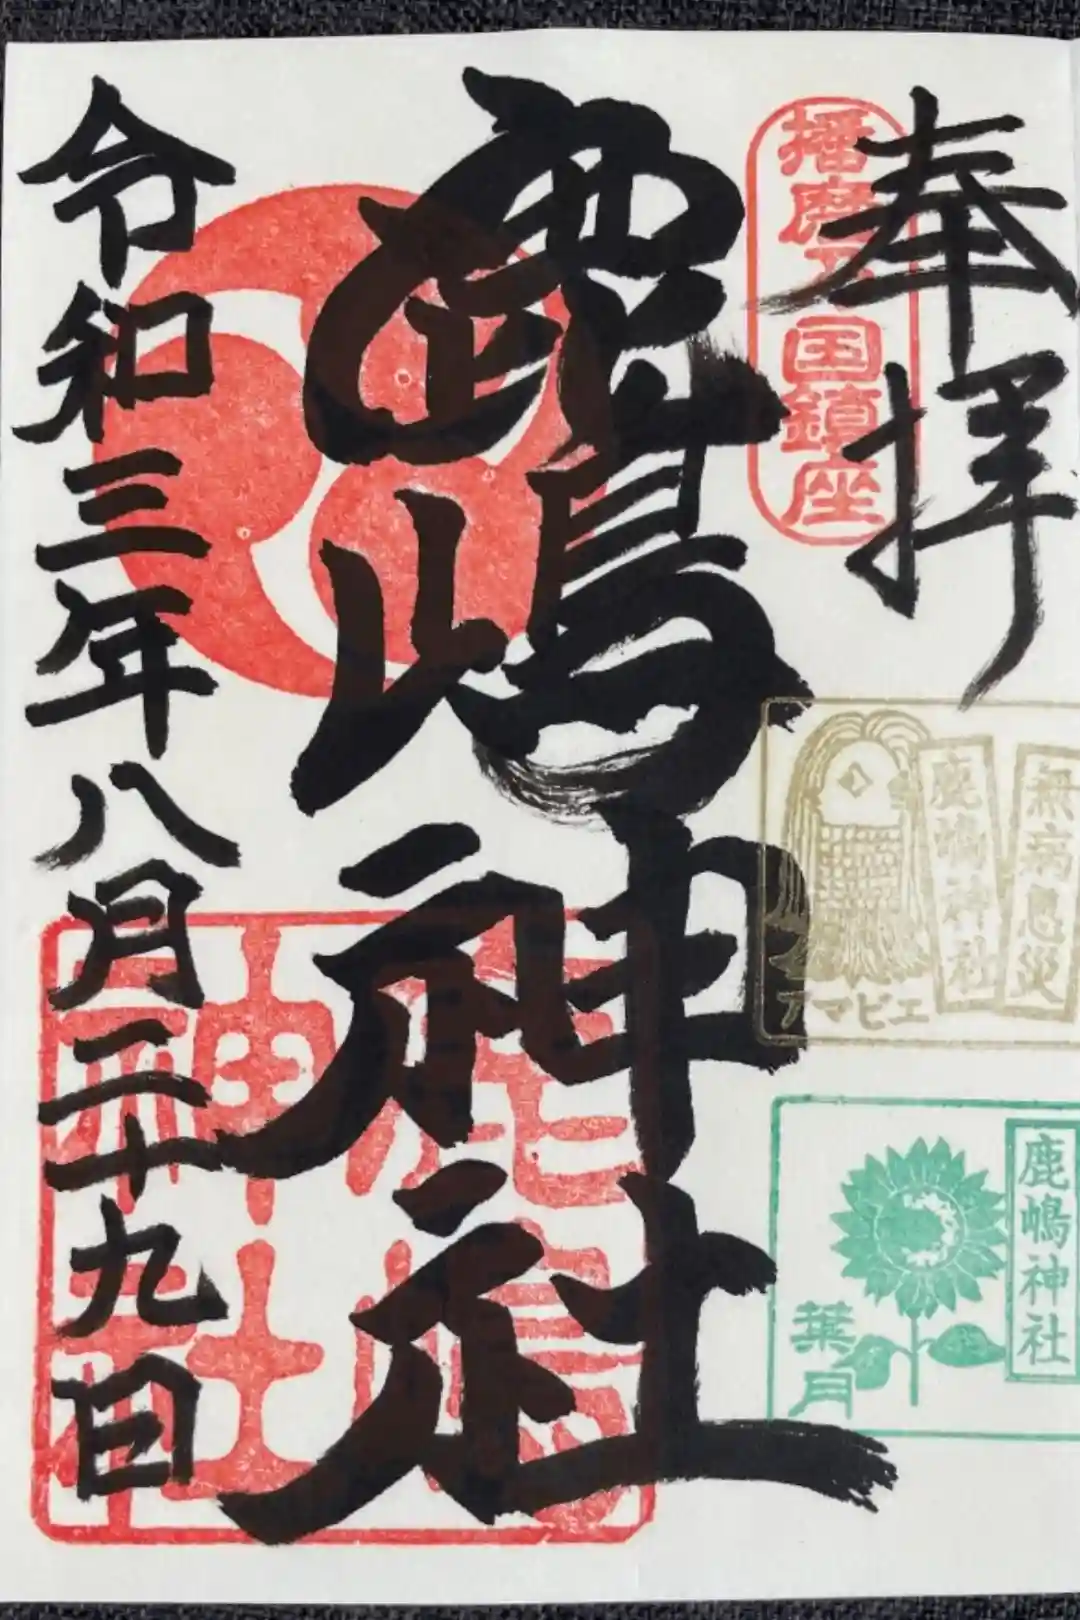 奉拝
播磨乃国鎮座
鹿嶋神社
令和三年八月二十九日
鹿嶋神社
無病息災
鹿嶋神社
アマビエ
鹿嶋神社
葉月